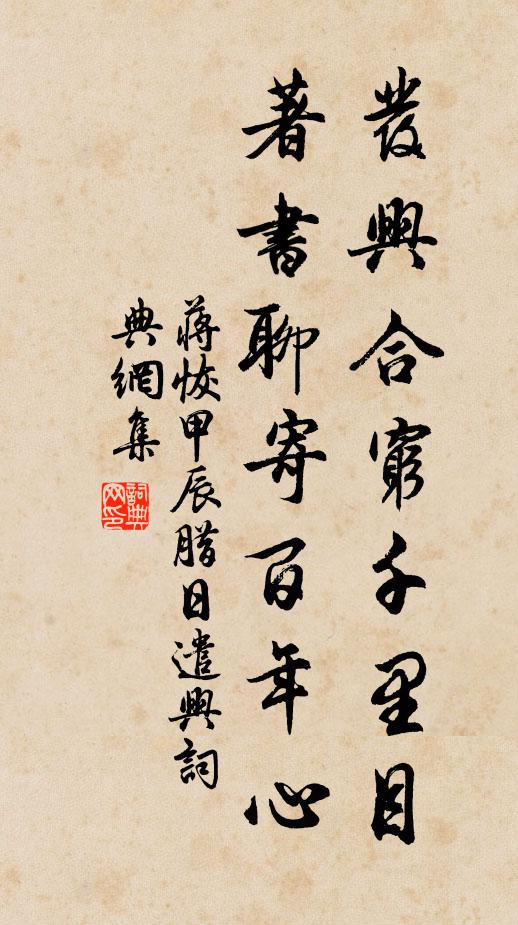 發興合窮千里目
著書聊寄百年心
蔣恢甲辰腊日遣興詞
典網集
詞典
网印